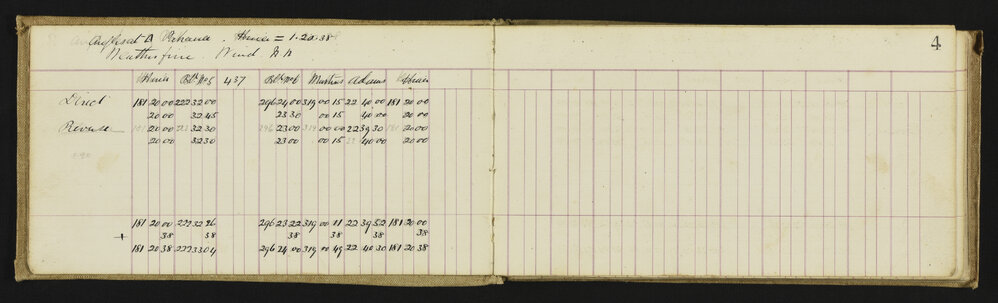 4
Angles at Δ Rehana . Hunui = 1.20.38
Weather fine . Wind N
Bk No 5 437 Bk No 6 Martins Adams
Direct 181 20 00 222 32 00 296 24 00 319 00 15 22 40 00 181 20 00
20 00 32 45 23 30 00 15 40 00 20 00
Reverse 181 20 00 222 32 30 296 23 00 319 00 00 22 39 30 181 20 00
20 00 32 30 23 00 00 15 22 40 00 20 00
181 20 00 222 32 26 296 23 22 319 00 11 22 39 52 181 20 00
+ 38 38 38 38 38 38
181 20 38 222 33 04 296 24 00 319 00 49 22 40 30 181 20 38